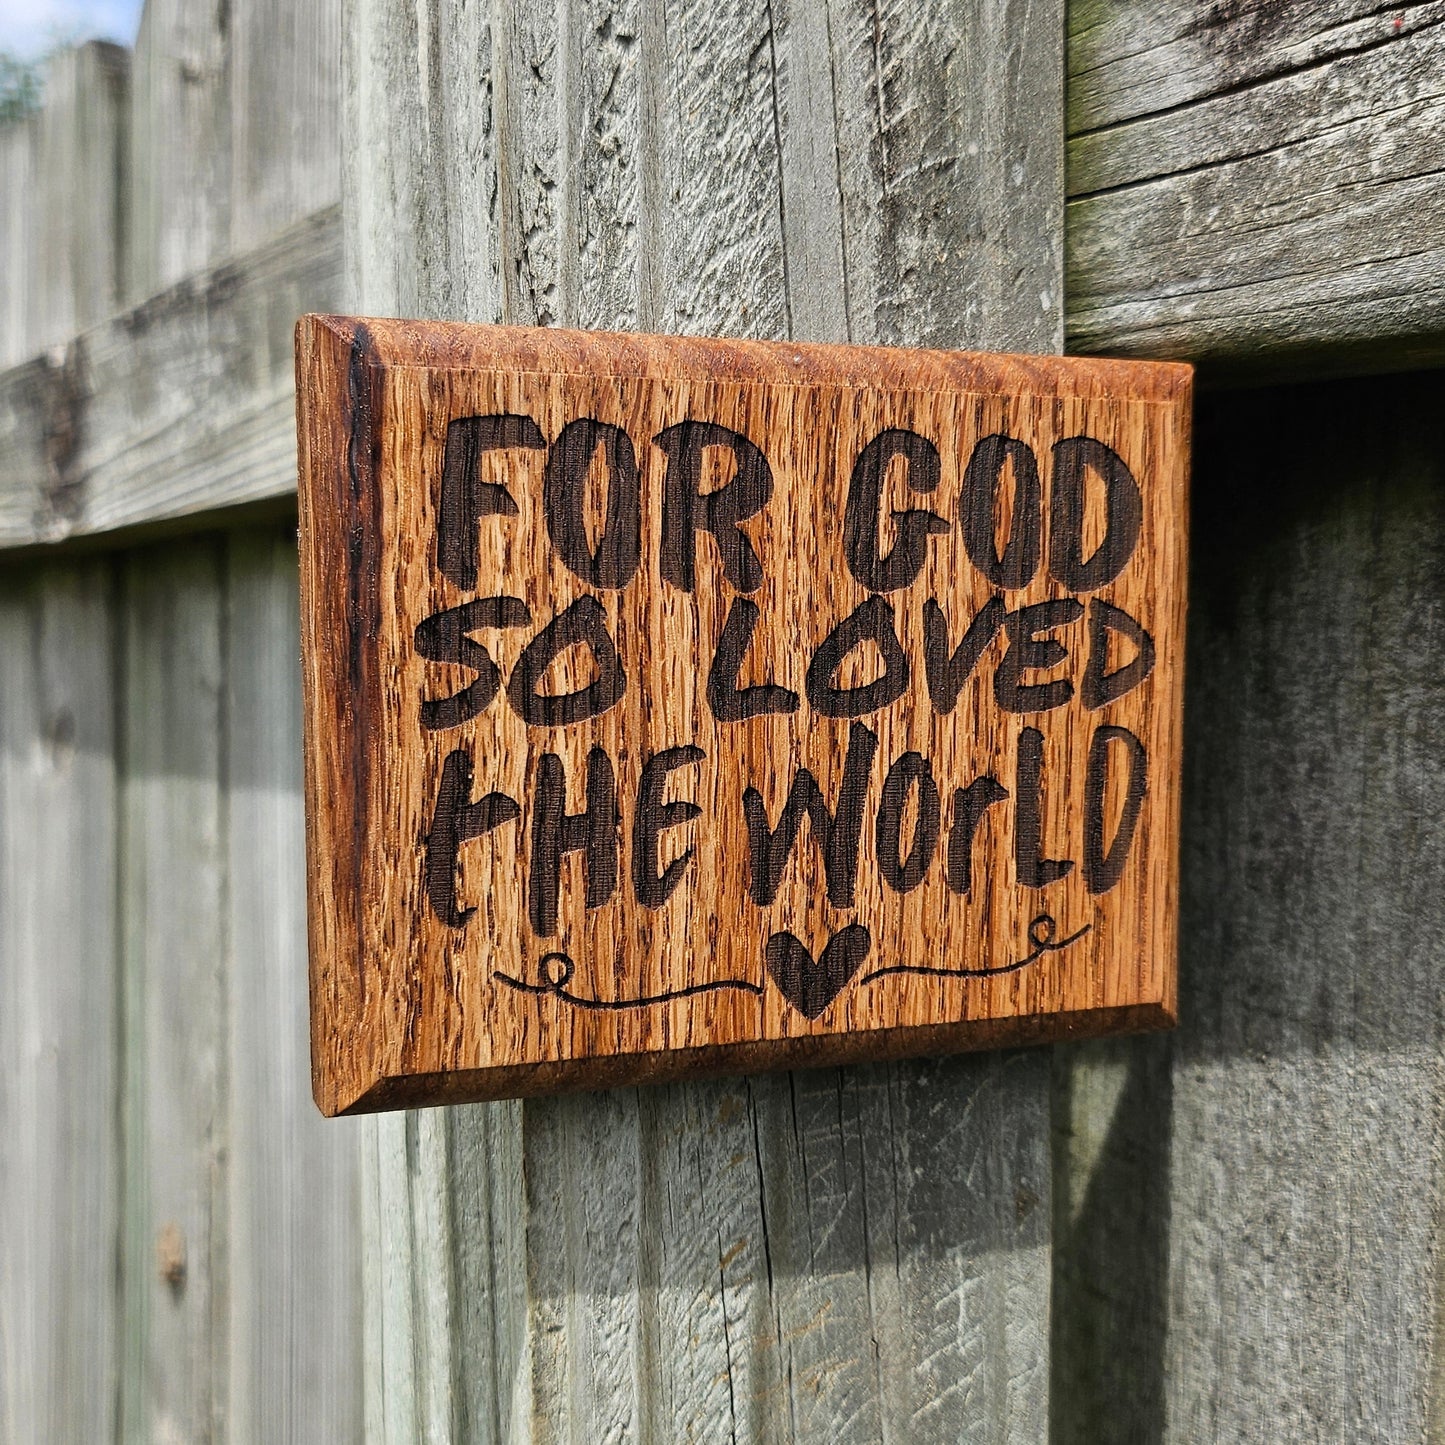 FOR GOD
SO LOVED
tHE WorLD